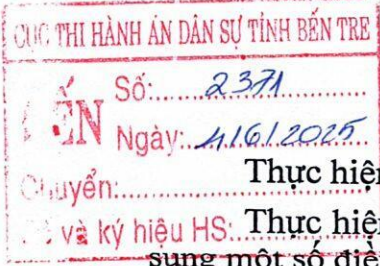 CỤC THI HÀNH ÁN DÂN SỰ TỈNH BẾN TRE
ĐẾN
Số:........2371............
Ngày:..4/6/2025
Chuyển:............
Thực hiện
và ký hiệu HS:
Thực hiện
sung một số điề